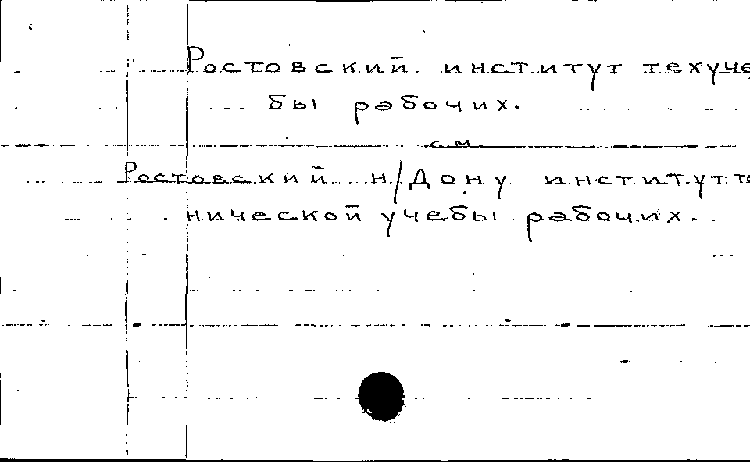 Ростовский институт техуче
бы рабочих.
см.
Ростовский н/Дону институт т
нической учебы рабочих.